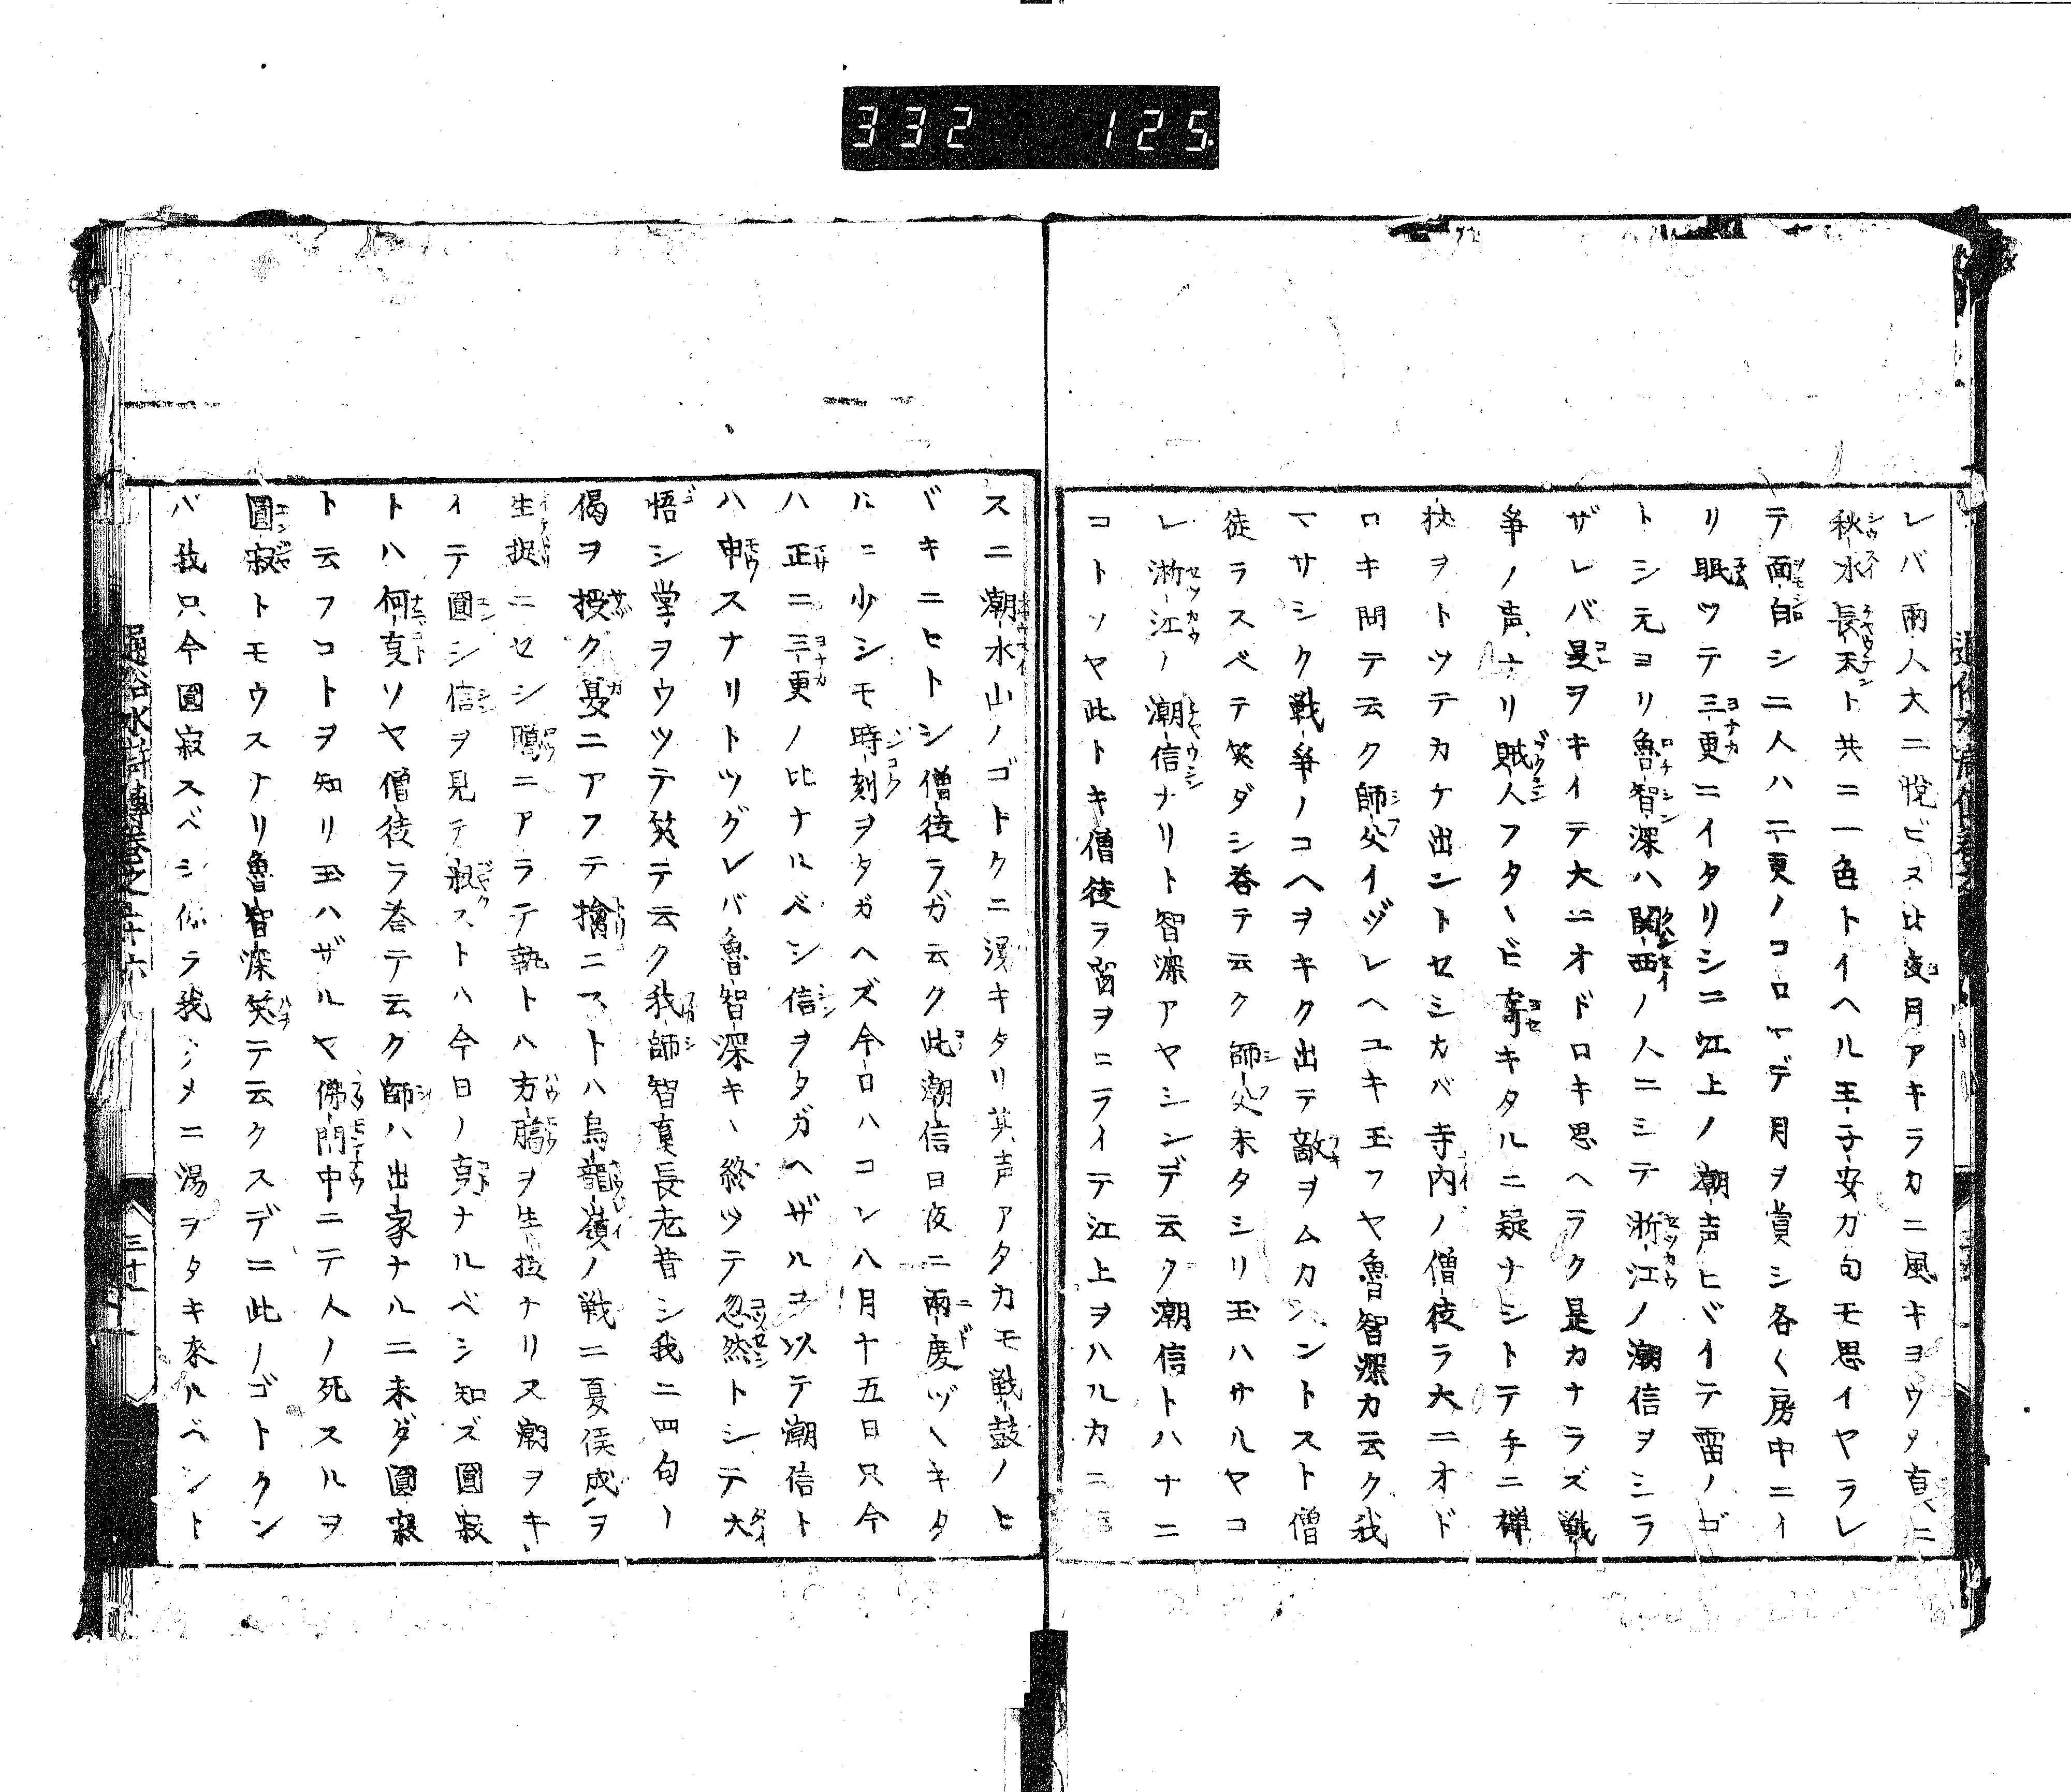 332 125
レバ兩人大ニ悦ビヌ此夜月アキラカニ風キヨウタ真ニ
秋水長天ト共ニ一色トイヘル王子安ガ句モ思イヤラレ
テ面白シ二人ハ二更ノコロマデ月ヲ賞シ各〱房中ニイ
リ眠ツテ三更ニイタリシニ江上ノ潮声ヒヾイテ雷ノゴ
トシ元ヨリ魯智深ハ関西ノ人ニシテ浙江ノ潮信ヲシラ
ザレバ是ヲキイテ大ニオドロキ思ヘラク是カナラズ戦
争ノ声ナリ賊人フタヽビ寄キタルニ疑ナシトテチニ禅
杖ヲトツテカケ出ントセシカバ寺内ノ僧徒ラ大ニオド
ロキ問テ云ク師父イヅレヘユキ玉フヤ魯智深カ云ク我
マサシク戦争ノコヘヲキク出テ敵ヲムカントスト僧
徒ラスベテ笑ダシ答テ云ク師父未タシリ玉ハサルヤコ
レ浙江ノ潮信ナリト智深アヤシンデ云ク潮信トハナニ
コトソヤ此トキ僧徒ラ窗ヲヒライテ江上ヲハルカニ
スニ潮水山ノゴトクニ湧キタリ其声アタカモ戦鼓ノヒ
バキニヒトシ僧徒ラガ云ク此潮信日夜ニ兩度ヅヽキタ
ルニ少シモ時刻ヲタガヘズ今日ハコレ八月十五日只今
ハ正ニ三更ノ比ナルベシ信ヲタガヘザルヲ以テ潮信ト
ハ申スナリトツグレバ魯智深キヽ終ツテ忽然トシテ大
悟シ掌ヲウツテ笑テ云ク我師智真長老昔シ我ニ四句ノ
偈ヲ授ク夏ニアフテ擒ニストハ烏龍嶺ノ戦ニ夏侯成ヲ
生捉ニセシ臘ニアラテ執トハ方臘ヲ生捉ナリヌ潮ヲキ
イテ圓シ信ヲ見テ寂ストハ今日ノ叓ナルベシ知ズ圓寂
トハ何叓ソヤ僧徒ラ答テ云ク師ハ出家ナルニ未ダ圓寂
ト云フコトヲ知リ玉ハザルヤ佛門中ニテ人ノ死スルヲ
圓寂トモウスナリ魯智深笑テ云クスデニ此ノゴトクン
バ我只今圓寂スベシ你ラ我タメニ湯ヲタキ來ルベシト
通俗水滸傳巻之